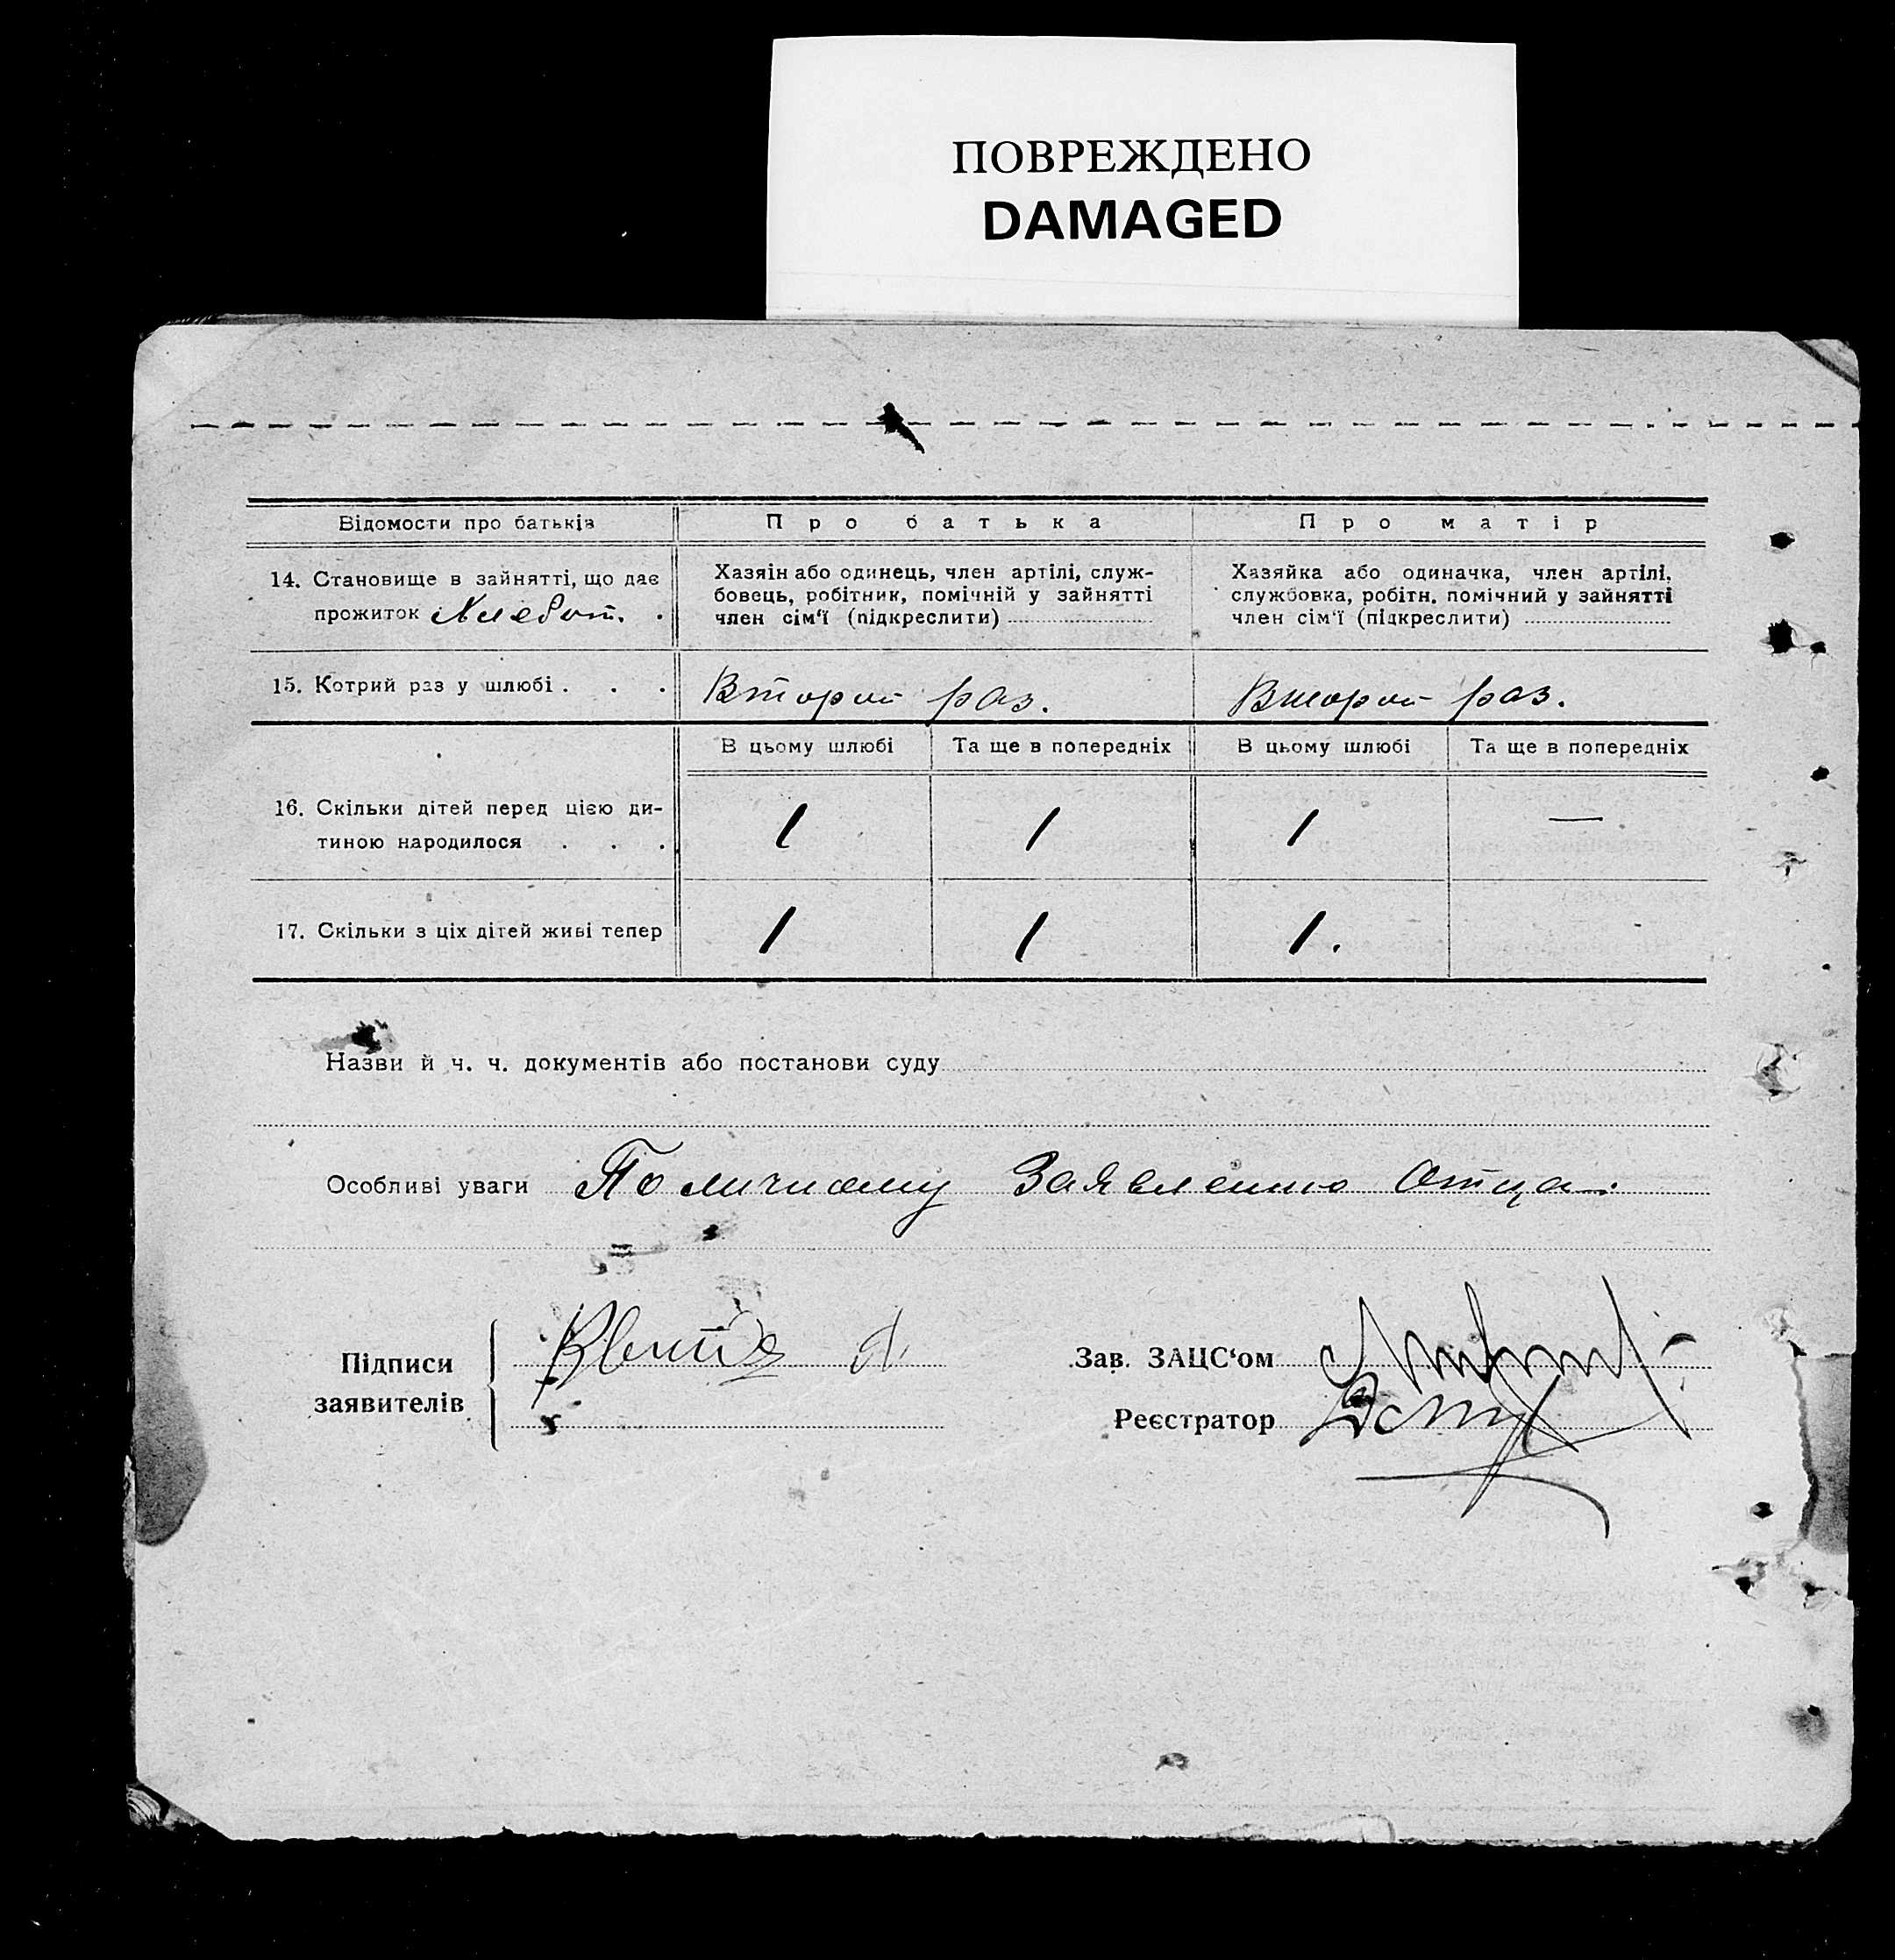 ПОВРЕЖДЕНО
DAMAGED
Відомости про батьків
Про батька
Про матір
14. Становище в зайнятті, що дає
прожиток Хлебоп. .
Хазяін або одинець, член артілі, служ-
бовець, робітник, помічній у зайнятті
член сім'ї (підкреслити)
Хазяйка або одиначка, член артілі,
службовка, робітн. помічний у зайнятті
член сім'ї (підкреслити)
15. Котрий раз у шлюбі . . .
Второй раз.
Второй раз.
В цьому шлюбі
Та ще в попередніх
В цьому шлюбі
Та ще в попередніх
16. Скільки дітей перед цією ди-
тиною народилося . . .
1
1
1
—
17. Скільки з ціх дітей живі тепер
1
1
1.
Назви й ч. ч. документів або постанови суду
Особливі уваги По личному Заявлению Отца.
Підписи
заявителів
Зав. ЗАЦС'ом
Реєстратор